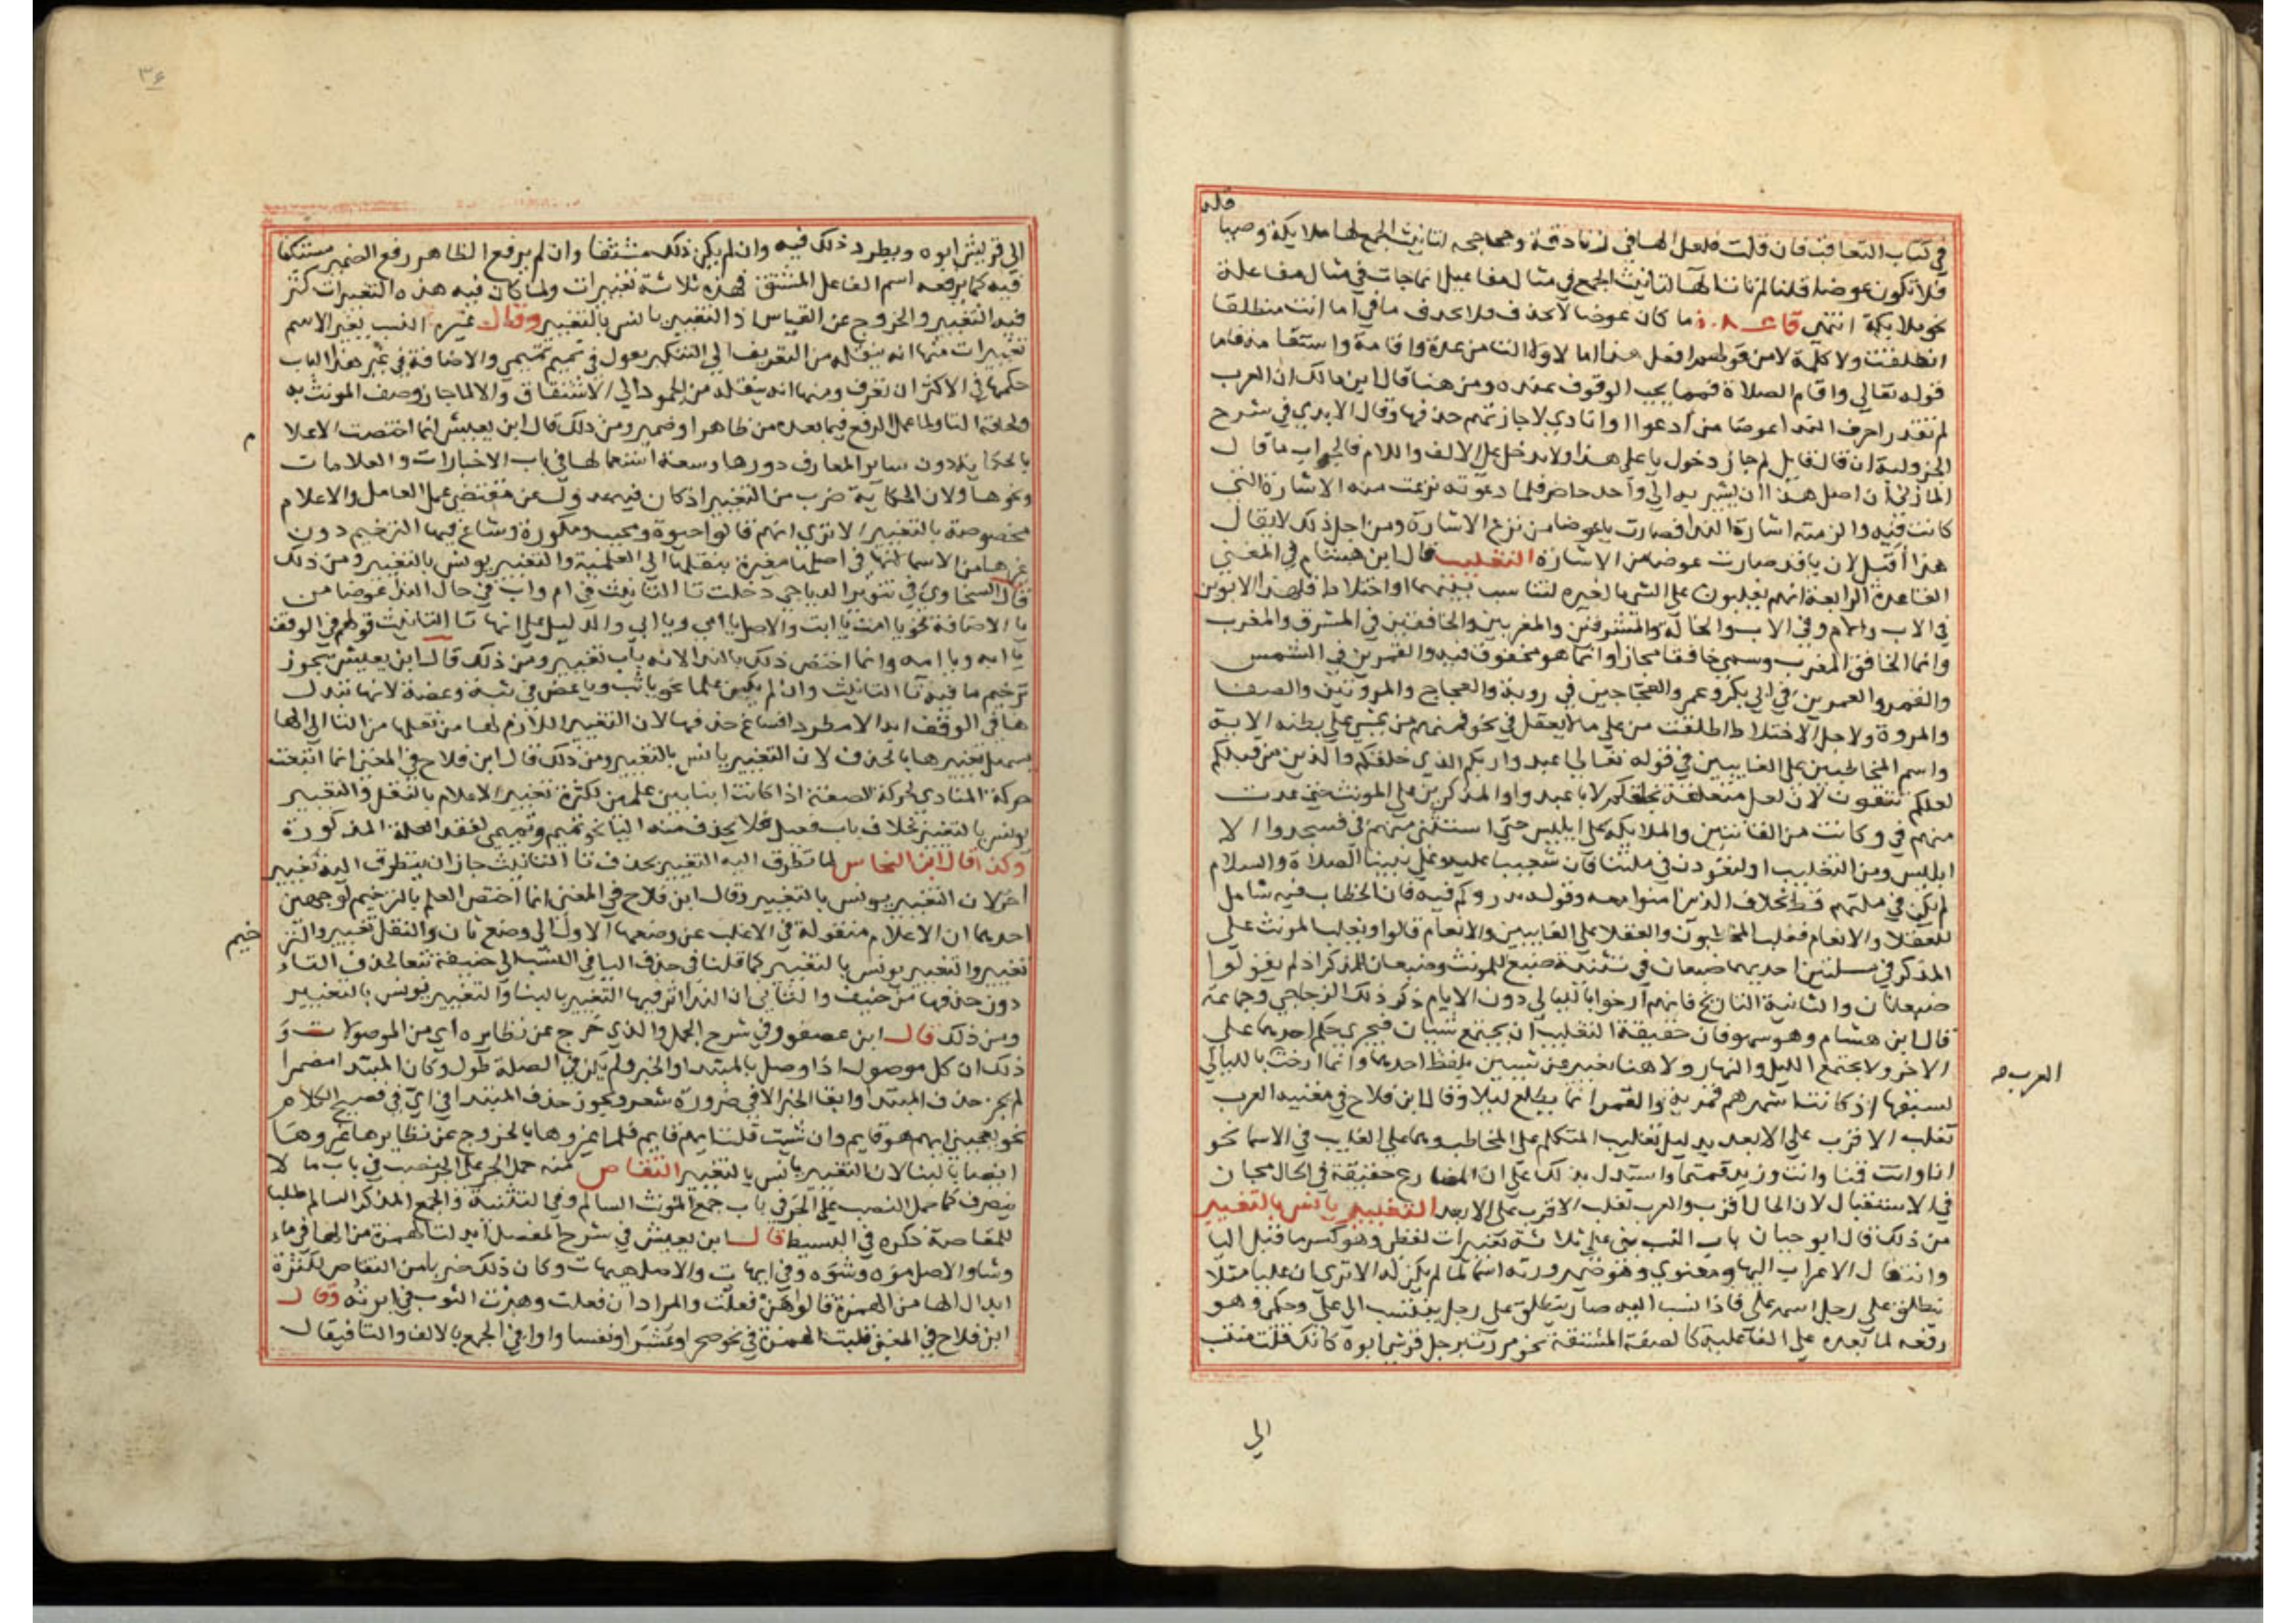 في كتاب التعاقب فان قلت فلعل الها في زنادقة وجحاجحه لتانيث الجمع لها ملايكة وصيا قله
فلا تكون عوضا قلنا لم تاتنا الها لتانيث الجمع في مثال مفاعيل انما جات في مثال مفاعلة
نحو ملايكة انتهى ما كان عوضا لا يحذف فلا تحذف ما في اما انت منطلقا
انطلقت ولا كلمة لا من قولهم افعل هذا اما لا ولا التا من عدة واقامة واستقامة فاما
قوله تعالي واقام الصلاة فمما يجب الوقوف عنده ومن هنا قال ابن مالك ان العرب
لم تقدر احرف الندا عوضا من ادعوا وانادي لاجازتهم حذفها وقال الابدي في شرح
الجزولية ان قال قايل لم جاز دخول يا على هذا ولا يدخل على الالف واللام فالجواب ما قال
المازني ان اصل هذا ان يشير به الي واحد حاضر فلما دعوته نزعت منه الاشارة التي
كانت فيه والزمته اشارة الندا فصارت يا عوضا من نزع الاشارة ومن اجل ذلك لا يقال
هذا اقبل لان يا قد صارت عوضا من الاشارة التغليب قال ابن هشام في المغني
القاعدة الرابعة انهم يغلبون على الشي ما لغيره لتناسب بينهما او اختلاط فلهذا الابوين
في الاب والام وفي الاب والخالة والمشرقين والمغربين والخافقين في المشرق والمغرب
وانما الخافق المغرب وسمي خافقا مجازا وانما هو مخفوق فيه والقمرين في الشمس
والقمر والعمرين في ابي بكر وعمر والعجاجين في روبة والعجاج والمروتين والصفا
والمروة ولاجل الاختلاط اطلقت من علي ما لا يعقل في نحو فمنهم من يمشي علي بطنه الاية
واسم المخاطبين على الغايبين في قوله تعالي اعبدوا ربكم الذي خلقكم والذين من قبلكم
لعلكم تتقون لان لعل متعلقة بخلقكم لا باعبدوا والمذكرين علي المونث حتي عدت
منهم في وكانت من القانتين والملايكة على ابليس حتي استثني منهم في فسجدوا الا
ابليس ومن التغليب او لتعودن في ملتنا فان شعيبا عليه وعلي نبينا الصلاة والسلام
لم يكن في ملتهم قط بخلاف الذين امنوا معه وقوله يذروكم فيه فان الخطاب فيه شامل
للعقلا والانعام فغلب المخاطبون والعقلا على الغايبين والانعام قالوا ويغلب المونث على
المذكر في مسلتين احديهما ضبعان في تثنية ضبع للمونث وضبعان للمذكر اذ لم يقولوا
ضبعانان والثانية التاريخ فانهم ارخوا بالليالي دون الايام ذكر ذلك الزجاجي وجماعة
قال ابن هشام وهو سهو فان حقيقة التغليب ان يجتمع شيان فيجري حكم احدهما على
الاخر ولا يجتمع الليل والنهار ولا هنا تعبير عن شيين بلفظ احدهما وانما ارخت بالليالي
العرب
لسبقها اذ كانت اشهرهم قمرية والقمر انما يطلع ليلا وقال ابن فلاح في مغنيه العرب
تغلب الاقرب علي الابعد بدليل تغليب المتكلم على المخاطب وهما على الغايب في الاسما نحو
انا وانت قمنا وانت وزيد قمتما واستدل بذلك على ان المضارع حقيقة في الحال مجاز
في الاستقبال لان الحال اقرب والعرب تغلب الاقرب على الابعد التغيير يانس بالتغيير
من ذلك قال ابو حيان باب النسب بني على ثلاثة تغييرات لفظي وهو كسر ما قبل اليا
وانتقال الاعراب اليها ومعنوي وهو صيرورته اسما لما لم يكن له الا تري ان عليا مثلا
يطلق على رجل اسمه على فاذا نسب اليه صار يطلق على رجل ينتسب الي على وحكمي وهو
رفعه لما بعده على الفاعلية كالصفة المشتقة نحو مررت برجل قرشي ابوه كانك قلت منتسب
الي
٣٤
الي قريش ابوه ويطرد ذلك فيه وان لم يكن ذلك مشتقا وان لم يرفع الظاهر رفع الضمير مستكنا
فيه كما يرفعه اسم الفاعل المشتق فهذه ثلاثة تغييرات ولما كان فيه هذه التغييرات كثر
فيه التغيير والخروج عن القياس اذ التغيير يانس بالتغيير وقال غيره النسب يغير الاسم
تغييرات منها انه ينقله من التعريف الي التنكير يقول في تميم تميمي والاضافة في غير هذا الباب
حكمها في الاكثر ان تعرف ومنها انه ينقله من الجمود الي الاشتقاق والا لما جاز وصف المونث به
ولحاقه التا ولما عمل الرفع فيما بعده من ظاهر او ضمير ومن ذلك قال ابن يعيش انما اختصت الاعلا
م
بالحكاية دون ساير المعارف لدورها وسعة استعمالها في باب الاخبارات والعلامات
ونحوها ولان الحكاية ضرب من التغيير اذ كان فيه عدول عن مقتضى عمل العامل والاعلام
مخصوصة بالتغيير الا تري انهم قالوا حيوة ومحبب ومكوزة وشاع فيها الترخيم دون
غيرها من الاسما لانها في اصلها مغيرة بنقلها الي العلمية والتغيير يونس بالتغيير ومن ذلك
قال السخاوي في تنوير الدياجي دخلت تا التانيث في ام واب في حال الندا عوضا من
يا الاضافة نحو يا امت يا ابت والاصل يا امي ويا ابي والدليل على انها تا التانيث قولهم في الوقف
يا امه ويا ابه وانما اختص ذلك بالندا لانه باب تغيير ومن ذلك قال ابن يعيش يجوز
ترخيم ما فيه تا التانيث وان لم يكن علما نحو يا ثب ويا عض في ثبة وعضة لانها تبدل
ها في الوقف ابدا لا مطردا فساغ حذفها لان التغيير اللازم لها من نقلها من التا الي الها
يسهل تغييرها بالحذف لان التغيير يانس بالتغيير ومن ذلك قال ابن فلاح في المغني انما اتبعت
حركة المنادي لحركة الصفة اذا كانت ابنا بين علمين لكثرة تغيير الاعلام بالنقل والتغيير
يونس بالتغيير بخلاف باب فعيل فلا يحذف منه اليا نحو تميم وتميمي لفقد العلة المذكورة
وكذا قال ابن النحاس لما تطرق اليه التغيير بحذف تا التانيث جاز ان يتطرق اليه تغيير
اخر لان التغيير يونس بالتغيير وقال ابن فلاح في المغني انما اختص العلم بالترخيم لوجهين
احدهما ان الاعلام منقولة في الاغلب عن وضعها الاول الي وضع ثان والنقل تغيير والتر
خيم
تغيير والتغيير يونس بالتغيير كما قلنا في حذف اليا في النسب الي حنيفة تبعا لحذف التاء
دون حذفها من حنيف والثاني ان الندا اثر فيها التغيير بالبنا والتغيير يونس بالتغيير
ومن ذلك قال ابن عصفور في شرح الجمل والذي خرج عن نظايره اي من الموصولات و
ذلك ان كل موصول اذا وصل بالمبتدا والخبر ولم يكن في الصلة طول وكان المبتدا مضمرا
لم يجز حذف المبتدا وابقا الخبر الا في ضرورة شعر ويجوز حذف المبتدا في اي في فصيح الكلام
نحو يعجبني ايهم هو قايم وان شيت قلت ايهم قايم فلما غيروها بالخروج عن نظايرها غيروها
ايضا بالبنا لان التغيير يانس بالتغيير التقاص منه حمل الجر على النصب في باب ما لا
ينصرف كما حمل النصب على الجر في باب جمع المونث السالم وفي التثنية والجمع المذكر السالم طلبا
للمقاصة ذكره في البسيط قال ابن يعيش في شرح المفصل ابدلت الهمزة من الها في ماء
وشاء والاصل موه وشوه وفي ايهات والاصل هيهات وكان ذلك ضربا من التقاص لكثرة
ابدال الها من الهمزة قالوا هن فعلت والمراد ان فعلت وهنرت الثوب في انرته وقال
ابن فلاح في المغني قلبت الهمزة في نحو صحراء وعشراء ونفساء واوا في الجمع بالالف والتا فيقال